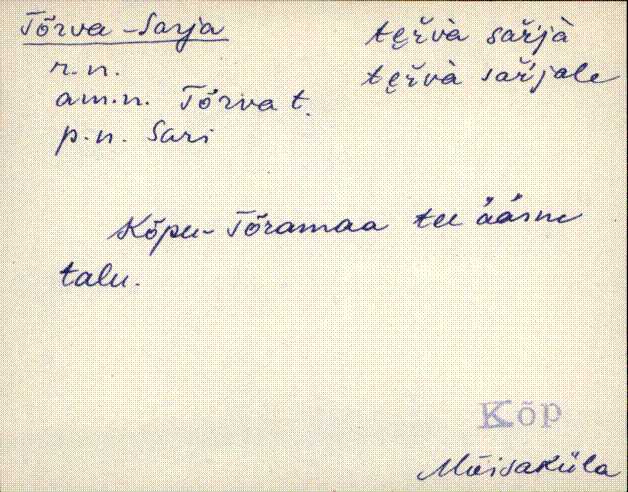 Tõrva-Sarja
tęr̆và sar̆jà
r.n.
tęr̆và sar̆jale
am.n. Tõrva t.
p.n. Sari
Kõpu-Tõramaa tee äärne
talu.
Kõp
Mõisaküla